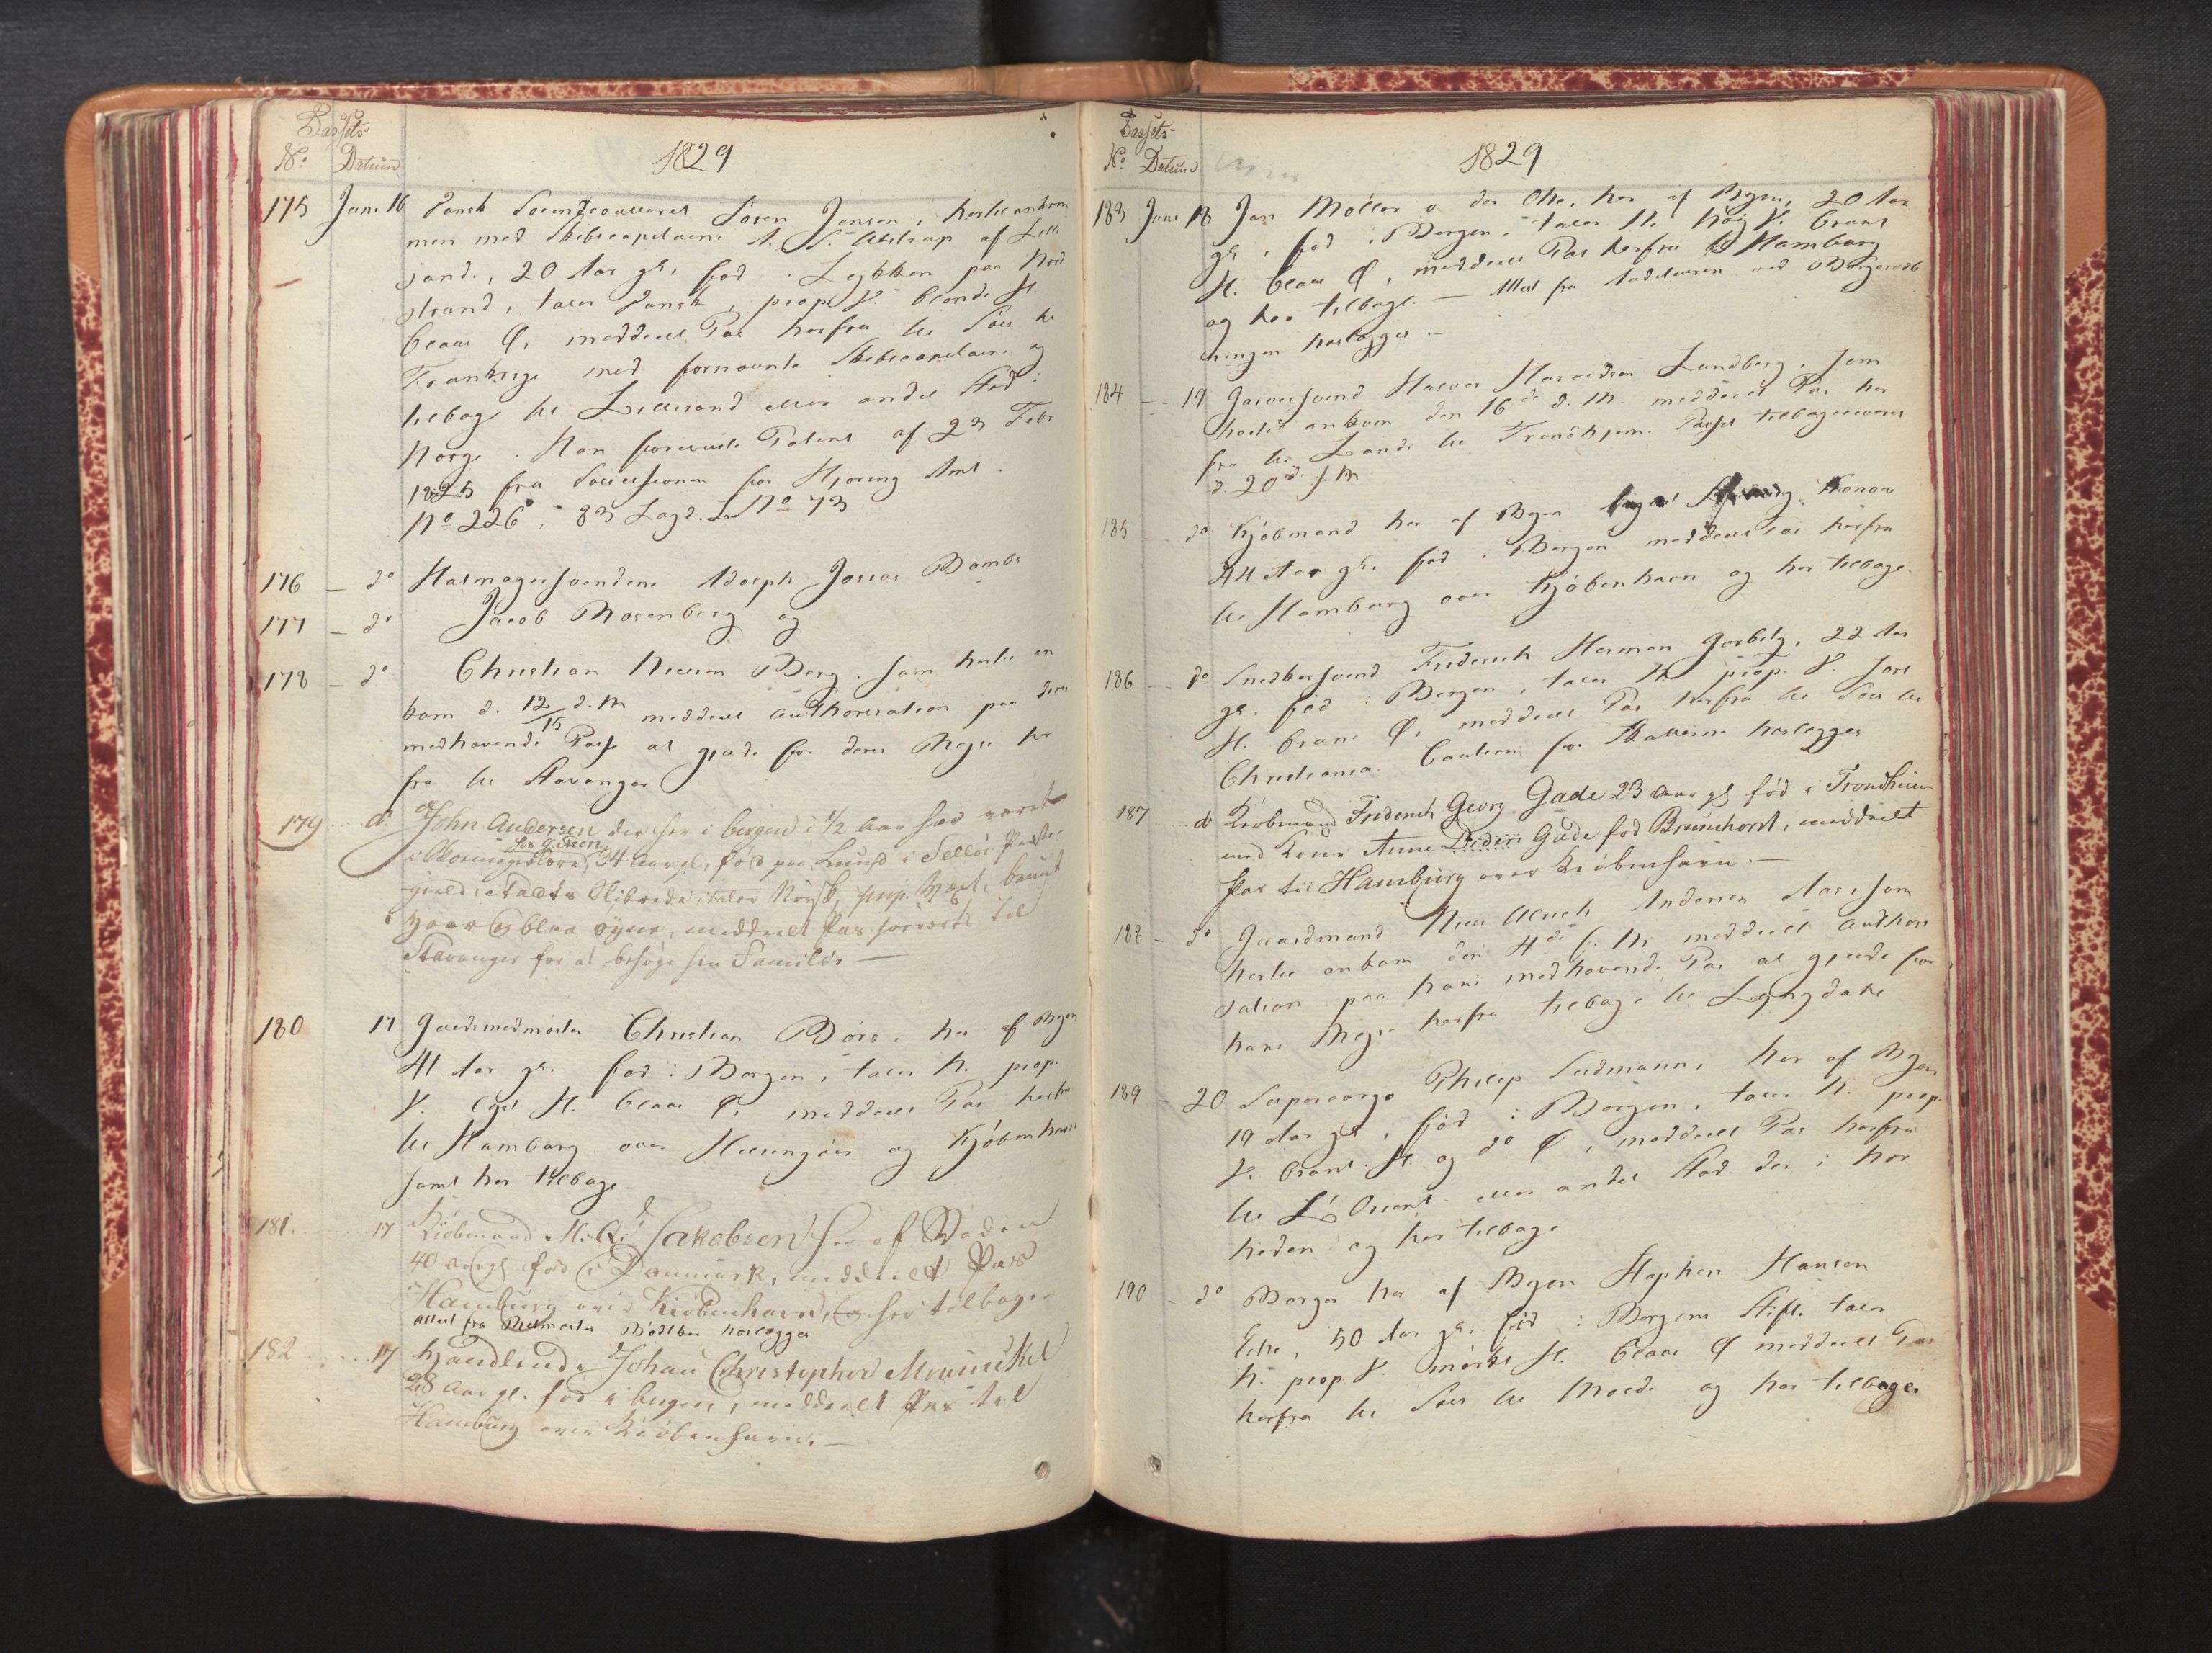 Passets
No Datum
1829
175 Juni 16 Dansk Søeindrouleret Søren Jensen, hertil ankom
men med Skibscapitaine A. S. Alstrup af Lille
sand, 20 Aar gl. fød i Løkken paa Nord
strand, taler Dansk, prop. V. blondt H.
blaae Ø, meddeelt Pas herfra til Søes til
Frankrige med fornævnte Skibscapitaine og
tilbage til Lillesand eller andet Sted i
Norge. Han foreviiste Patent af 23 Febr
1825 fra Sessionen for Hjøring Amt.
No 226, 83 Lægd. L No 73
176 - do Hatmagersvendene Adolph Josias Bambs
177 - do Jacob Rosenberg og
178 - do Christian Berg, som hertil an
kom d. 12/15 d. M meddeelt Authorisation paa deres
medhavende Passe at gjælde for deres Reyse her
fra til Stavanger
179 do John Andersen der her i bergen i 1/2 Aar har været
hos G: Steen,
i Skomagerlære, 24 Aar gl, fød paa Lund i Præste-
gield i Stadts Alibrede, taler Norsk, prop. Væxt, bruunt
Haar og blaa øyne, meddeelt Pas herved til
Stavanger for at besøge sin Familie —
180 17 Guldsmedmester Christian Børs, her af Byen
41 Aar gl. fød i Bergen, taler N. prop.
V. lyst H. blaae Ø, meddeelt Pas herfra
til Hamburg over Helsingöer og Kjöbenhavn
samt her tilbage -
181. 17 Kiöbmand H. Q: Jakobsen her af Staden
40 Aar gl fød i Danmark, meddeelt Pas
Hamburg over Kiöbenhavn, og her tilbage
Attest fra herlægges
182 17 Handlende Johan Christopher Mowinckel
28 Aar gl. fød i bergen, meddeelt Pas til
Hamburg over Kiöbenhavn. —
Passets-
No Datum
1829
183 Juni 18 Jan Møller v. der Ohe, her af Byen, 20 Aar
gl, fød i Bergen, taler N. høy V. bruunt
H. blaae Ø, meddeelt Pas herfra til Hamburg
og her tilbage. — Attest fra Auditeuren ved Borgervæb
ningen herlægges. —
184 - 19 Garversvend Halvor Halvorsen Lundberg, som
hertil ankom den 16de d. M. meddeelt Pas her
fra til Lands til Trondhjem. Passet tilbageleveret
d. 20de s. M
185 - do Kjöbmand her af Byen Konow
44 Aar gl. fød i Bergen meddeelt Pas herfra
til Hamburg over Kjöbenhavn og her tilbage.
186 - do Snedkersvend Friderich Herman Gerbitz, 22 Aar
gl. fød i Bergen, taler N. prop. V. sort
H. brune Ø, meddeelt Pas herfra til Søes til
Christiania. Caution for Skatterne herlægges
187 do Kiöbmand Friderich Georg Gade 23 Aar gl fød i Trondheim
med Kone Anne Gade fød Brunchorst, meddeelt
Pas til Hamburg over Kiöbenhavn. —
188 - do Gaardmand Niels Ulrich Andersen Aas, som
hertil ankom den 4de d. M. meddeelt Authori
sation paa hans medhavende Pas at gjelde for
hans Reyse herfra tilbage til Lyngdahl
189 - 20 Supercargo Philip Seidmann, her af Byen
19 Aar gl, fød i Bergen, taler N. prop.
V. bruunt H. og do Ø, meddeelt Pas herfra
til L'Orient eller andet Sted der i Nær
heden og her tilbage
190 - do Borger her af Byen Stephen Hansen
Eche, 50 Aar gl. fød i Bergens Stift. taler
N. prop. V. mörkt H. blaae Ø meddeelt Pas
herfra til Søes til Molde og her tilbage.